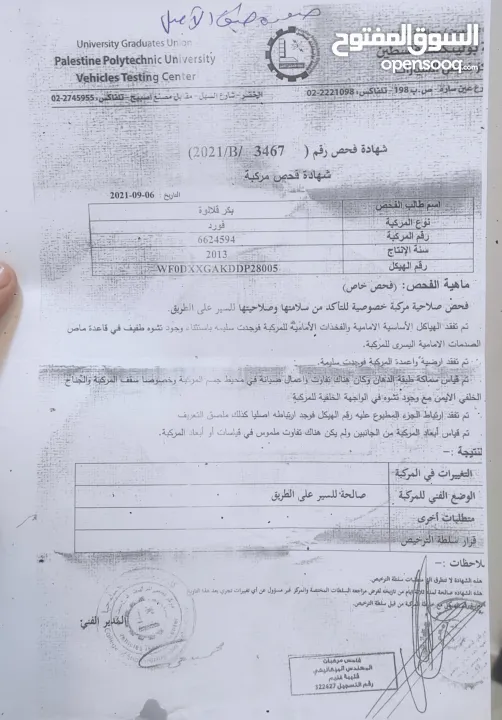 صورة طبق الأصل
السوق المفتوح
opensooq.com
University Graduates Union
Palestine Polytechnic University
Vehicles Testing Center
ص.ب 198 - تلفاكس: 02-2221098
الخضر - شارع السيل - مقابل مصنع اسبيح - تلفاكس: 02-2745955
شهادة فحص رقم ( 3467 /2021/B)
شهادة فحص مركبة
التاريخ : 06-09-2021
اسم طالب الفحص بكر قلالوة
نوع المركبة فورد
رقم المركبة 6624594
سنة الإنتاج 2013
رقم الهيكل WF0DXXGAKDDP28005
ماهية الفحص: (فحص خاص)
فحص صلاحية مركبة خصوصية للتأكد من سلامتها وصلاحيتها للسير على الطريق.
تم تفقد الهياكل الأساسية الامامية والفخذات الأمامية للمركبة فوجدت سليمة باستثناء وجود تشوه طفيف في قاعدة ماص
الصدمات الامامية اليسرى للمركبة.
تم تفقد ارضية واعمدة المركبة فوجدت سليمة.
تم قياس سماكة طبقة الدهان وكان هناك تفاوت واعمال صيانة في محيط جسم المركبة وخصوصا سقف المركبة والجناح
الخلفي الأيمن مع وجود تشوه في الواجهة الخلفية للمركبة
تم تفقد إرتباط الجزء المطبوع عليه رقم الهيكل فوجد ارتباطه اصليا كذلك ملصق التعريف
تم قياس أبعاد المركبة من الجانبين ولم يكن هناك تفاوت ملموس في قياسات أو أبعاد المركبة.
النتيجة :-
التغييرات في المركبة
الوضع الفني للمركبة صالحة للسير على الطريق
متطلبات أخرى
قرار سلطة الترخيص
لاحظات :-
هذه الشهادة لا تتطرق الى متطلبات سلطة الترخيص.
المدير الفني
فاحص مركبات
المهندس الميكانيكي
رقم التسجيل 122627